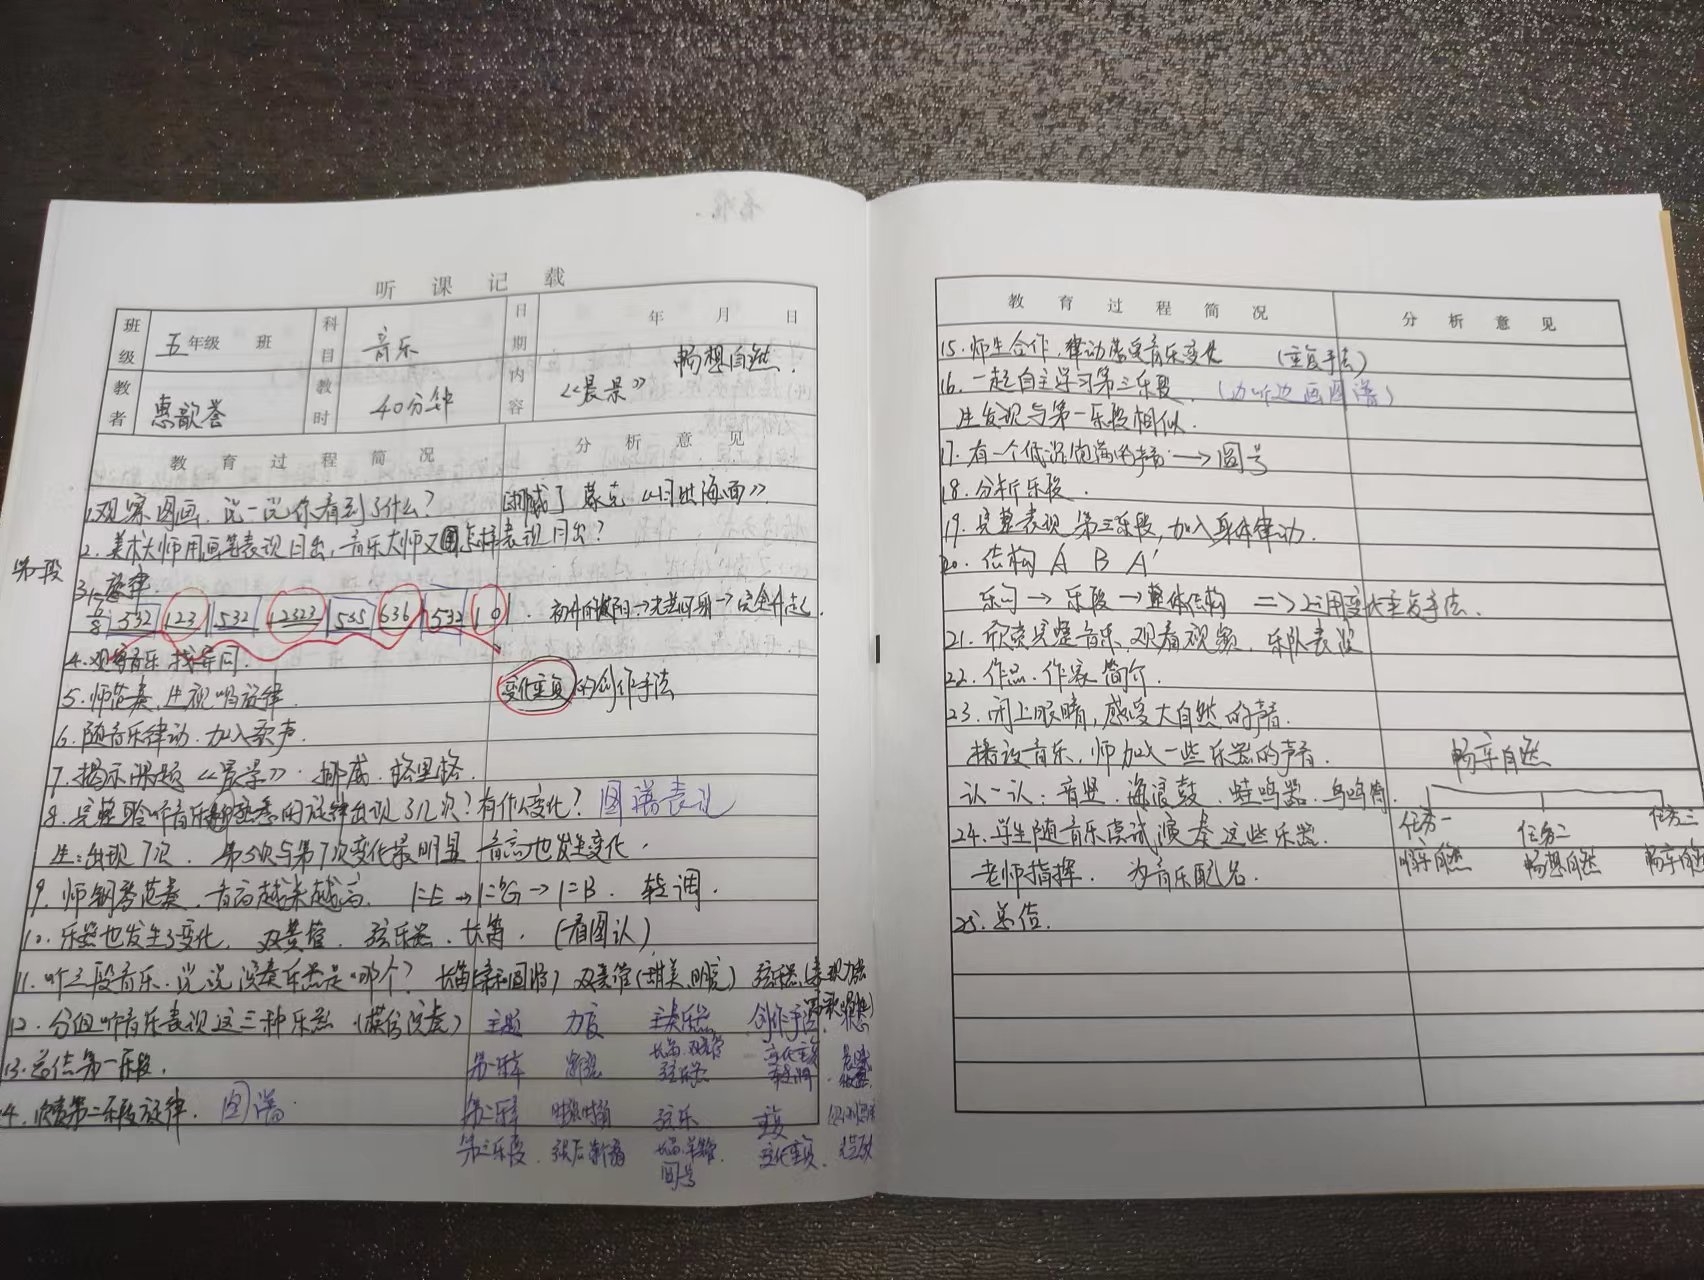 听课记载
班级 五年级 班 科目 音乐 日期 年 月 日
教者 惠歆荟 教时 40分钟 内容 《晨景》 畅想自然.
教育过程简况 分析意见
1.观察图画,说一说你看到了什么? 挪威 蒙克《日出海面》
2.美术大师用画笔表现日出,音乐大师又怎样表现日出?
第一段
3.旋律.
6/8 532 123 | 532 12323 | 535 636 | 532 10 |
4. 音乐 找异同.
5.师范奏,生视唱旋律. 变化重复的创作手法
6.随音乐律动.加入歌声.
7.揭示课题《晨景》.挪威.格里格.
8.完整聆听音乐 熟悉的旋律出现了几次?有什么变化? 图谱表示
生:出现7次. 第5次与第7次变化最明显.音高也发生变化.
9.师钢琴范奏.音高越来越高. 1=E→1=♭G→1=B. 转调.
10.乐器也发生了变化. 双簧管. 弦乐器.长笛.(看图认)
11.听三段音乐.说说演奏乐器是哪个? 长笛 双簧管(甜美.明亮) 弦乐器(表现力强
12.分组听音乐表现这三种乐器(模仿演奏) 主题 力度 主奏乐器 创作手法
13.总结第一乐段. 第一乐章 渐强 长笛.双簧管 弦乐器 变化重复 转调
14.欣赏第二乐段旋律. 图谱. 第二乐章 弦乐 重复
第三乐段. 变化重复. 圆号
教育过程简况 分析意见
15.师生合作.律动感受音乐变化 (重复手法)
16.一起自主学习第三乐段. (边听边画图谱)
生发现与第一乐段相似.
17.有一个低沉饱满的声音→圆号
18.分析乐段.
19.完整表现第三乐段,加入身体律动.
20.结构 A B A'
乐句→乐段→整体结构 =>运用变化重复手法.
21.欣赏完整音乐.观看视频.乐队表演
22.作品.作家简介.
23.闭上眼睛,感受大自然的声音.
播放音乐,师加入一些乐器的声音.
认一认:音竖.海浪鼓.蛙鸣器.鸟鸣筒.
24.学生随音乐尝试演奏这些乐器.
老师指挥. 为音乐配器.
25.总结.
畅享自然
任务一 任务二 任务三
自然 畅想自然 畅享自然